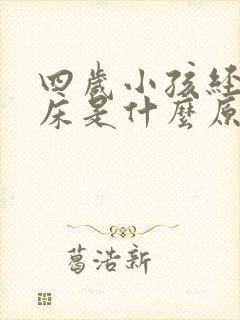 四歲小孩経
床是什麼原
葛浩新